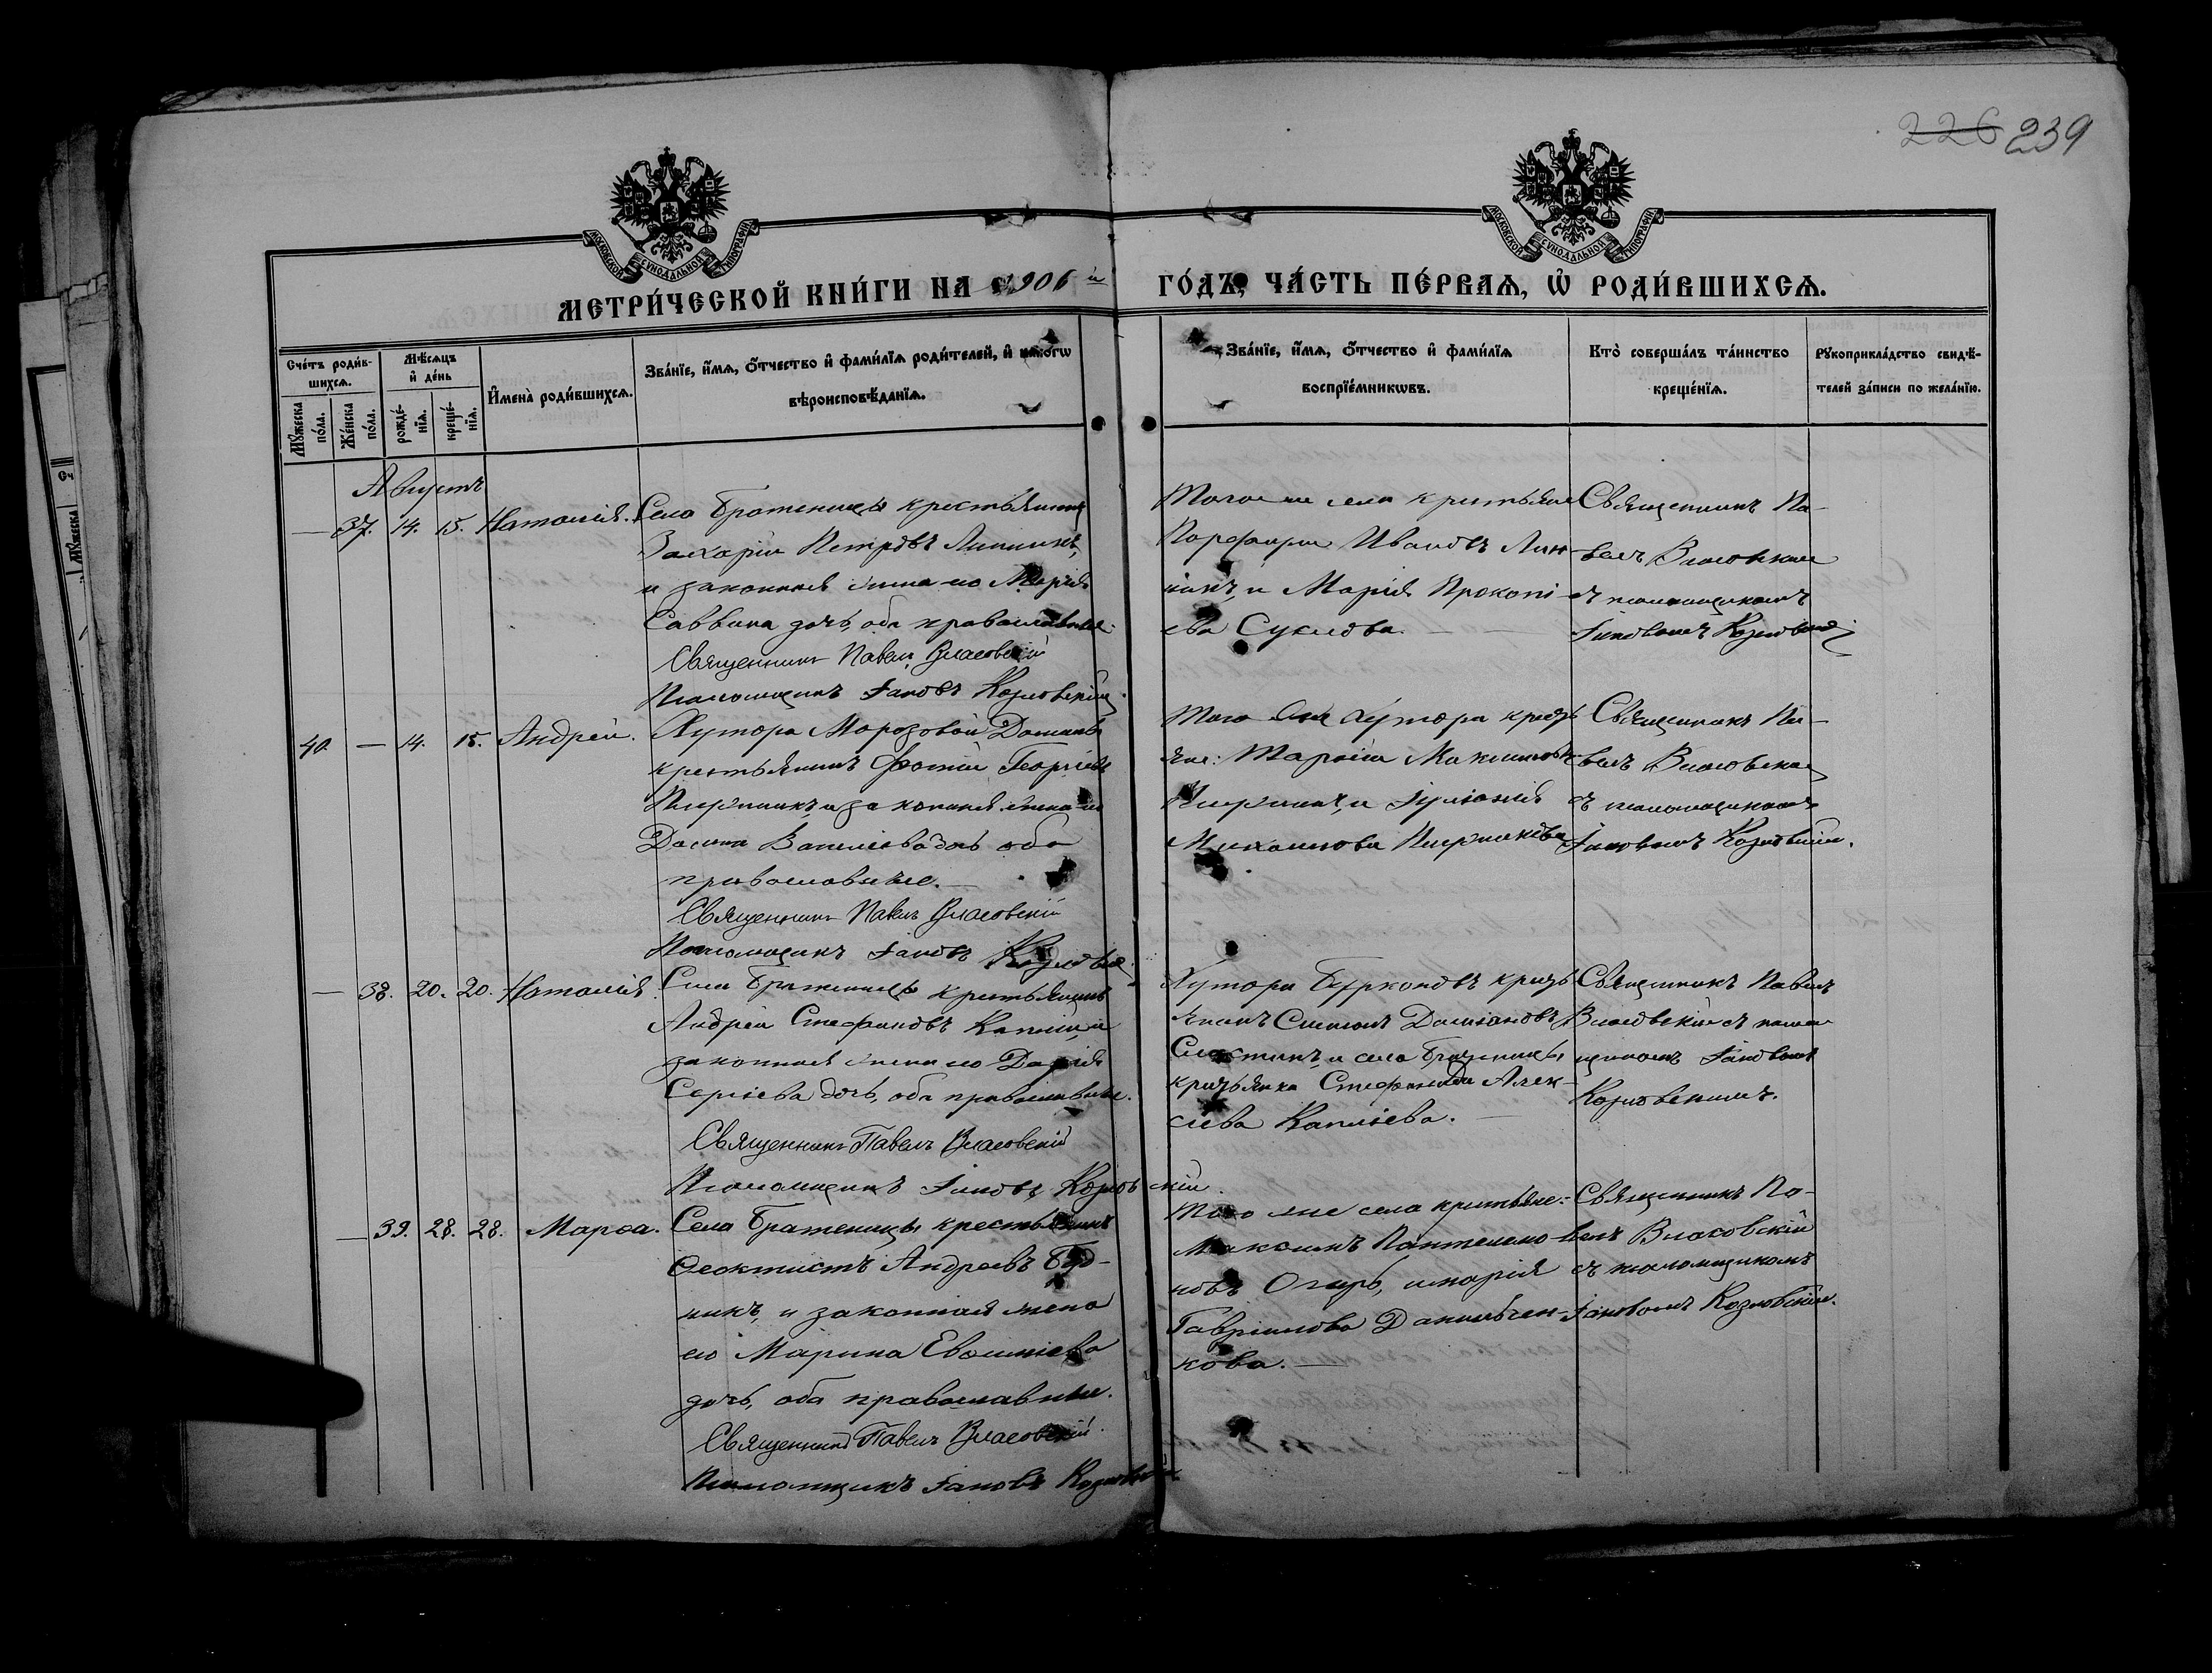 226 239
МОСКОВСКОЙ СѴНОДАЛЬНОЙ ТИПОГРАФІИ
МОСКОВСКОЙ СѴНОДАЛЬНОЙ ТИПОГРАФІИ
МЕТРИ́ЧЕСКОЙ КНИ́ГИ НА 1906 й ГО́ДЪ, ЧА́СТЬ ПЕ́РВАѦ, Ѡ҆ РОДИ́ВШИХСѦ.
Сче́тъ роди́в-
шихсѧ.
Мꙋ́жеска
по́ла.
Же́нска
по́ла.
Мѣ́сѧцъ
и҆ де́нь
рожде́-
нїѧ.
креще́-
нїѧ.
И҆мена̀ роди́вшихсѧ.
Зва́нїе, и҆́мѧ, ѻ҆́тчество и҆ фами́лїѧ роди́телей, и҆ какогѡ
вѣроисповѣ́данїѧ.
Зва́нїе, и҆́мѧ, ѻ҆́тчество и҆ фами́лїѧ
воспрїе́мникѡвъ.
Кто̀ соверша́лъ та́инство
креще́нїѧ.
Рꙋкоприкла́дство свидѣ́-
телей за́писи по жела́нїю.
Августъ
— 37. 14. 15. Наталія.
Села Браженицы крестьянинъ
Захарій Петровъ
и законная жена его Марія
Саввина дочь, оба православные.
Священникъ Павелъ Власовскій
Псаломщикъ Іаковъ Козловскій
Того же села крестьяне
Порфирій Ивановъ
и Марія Прокопі-
ева Суклова.
Священникъ Па-
велъ Власовскій
съ псаломщикомъ
Іаковомъ Козловскимъ
40. — 14. 15. Андрей.
Хутора Морозовой Долины
крестьянинъ Фотій Георгіевъ
и законная жена его
Васильева дочь оба
православные.
Священникъ Павелъ Власовскій
Псаломщикъ Іаковъ Козловскій
Того же хутора
и Іуліанія
Михаилова
Священникъ Па-
велъ Власовскій
съ псаломщикомъ
Іаковомъ Козловскимъ.
— 38. 20. 20. Наталія.
Села Браженицы крестьянинъ
Андрей Стефановъ
законная жена его Дарія
Сергіева дочь, оба православные.
Священникъ Павелъ Власовскій
Псаломщикъ Іаковъ Козловскій
Хутора
Даміановъ
и села Браженицы
Стефанида Алек-
сіева
Священникъ Павелъ
Власовскій съ псалом-
щикомъ Іаковомъ
Козловскимъ.
— 39. 28. 28. Марѳа.
Села Браженицы крестьянинъ
Ѳеоктистъ Андреевъ Буд-
никъ, и законная жена
его Марина Евѳиміева
дочь, оба православные.
Священникъ Павелъ Власовскій
Псаломщикъ Іаковъ Козловскій
Того же села крестьяне:
Максимъ Пантелеймо-
новъ Огирь, и Марія
Гавріилова Данильчен-
кова.
Священникъ Па-
велъ Власовскій
съ псаломщикомъ
Іаковомъ Козловскимъ.